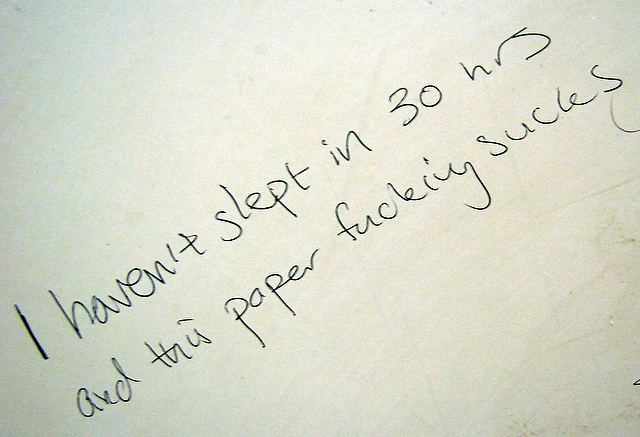 I haven't slept in 30 hrs
and this paper fucking sucks